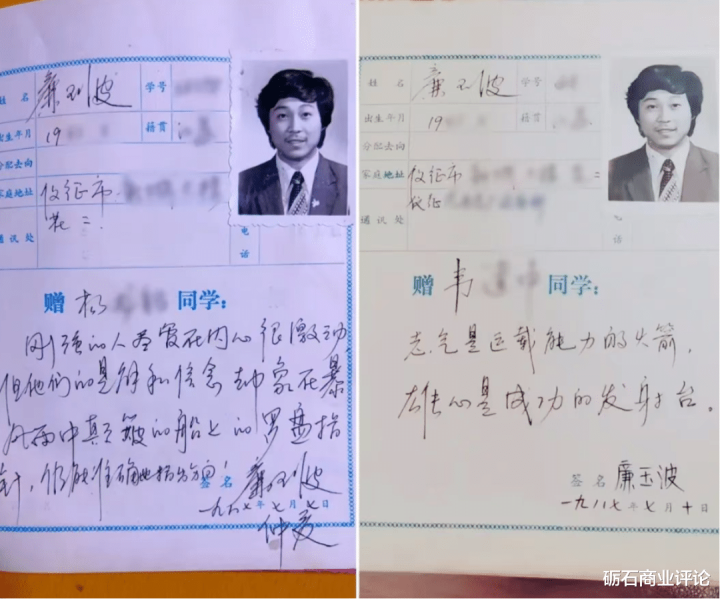 姓 名 廉玉波 学号
出生年月 19 籍贯
分配去向
家庭地址 仪征市
通讯处
电话
赠 杨 同学:
刚强的人尽管在内心很激动
但他们的见解和信念却象在暴
风雨中颠簸的船上的罗盘指
针,仍能准确地指出方向!
签名 廉玉波
一九八七年七月七日
姓 名 廉玉波 学号
出生年月 19 籍贯
分配去向
家庭地址 仪征市
仪征
通讯处
电话
赠 韦 同学:
志气是运载能力的火箭,
雄心是成功的发射台。
签名 廉玉波
一九八七年七月十日
砺石商业评论